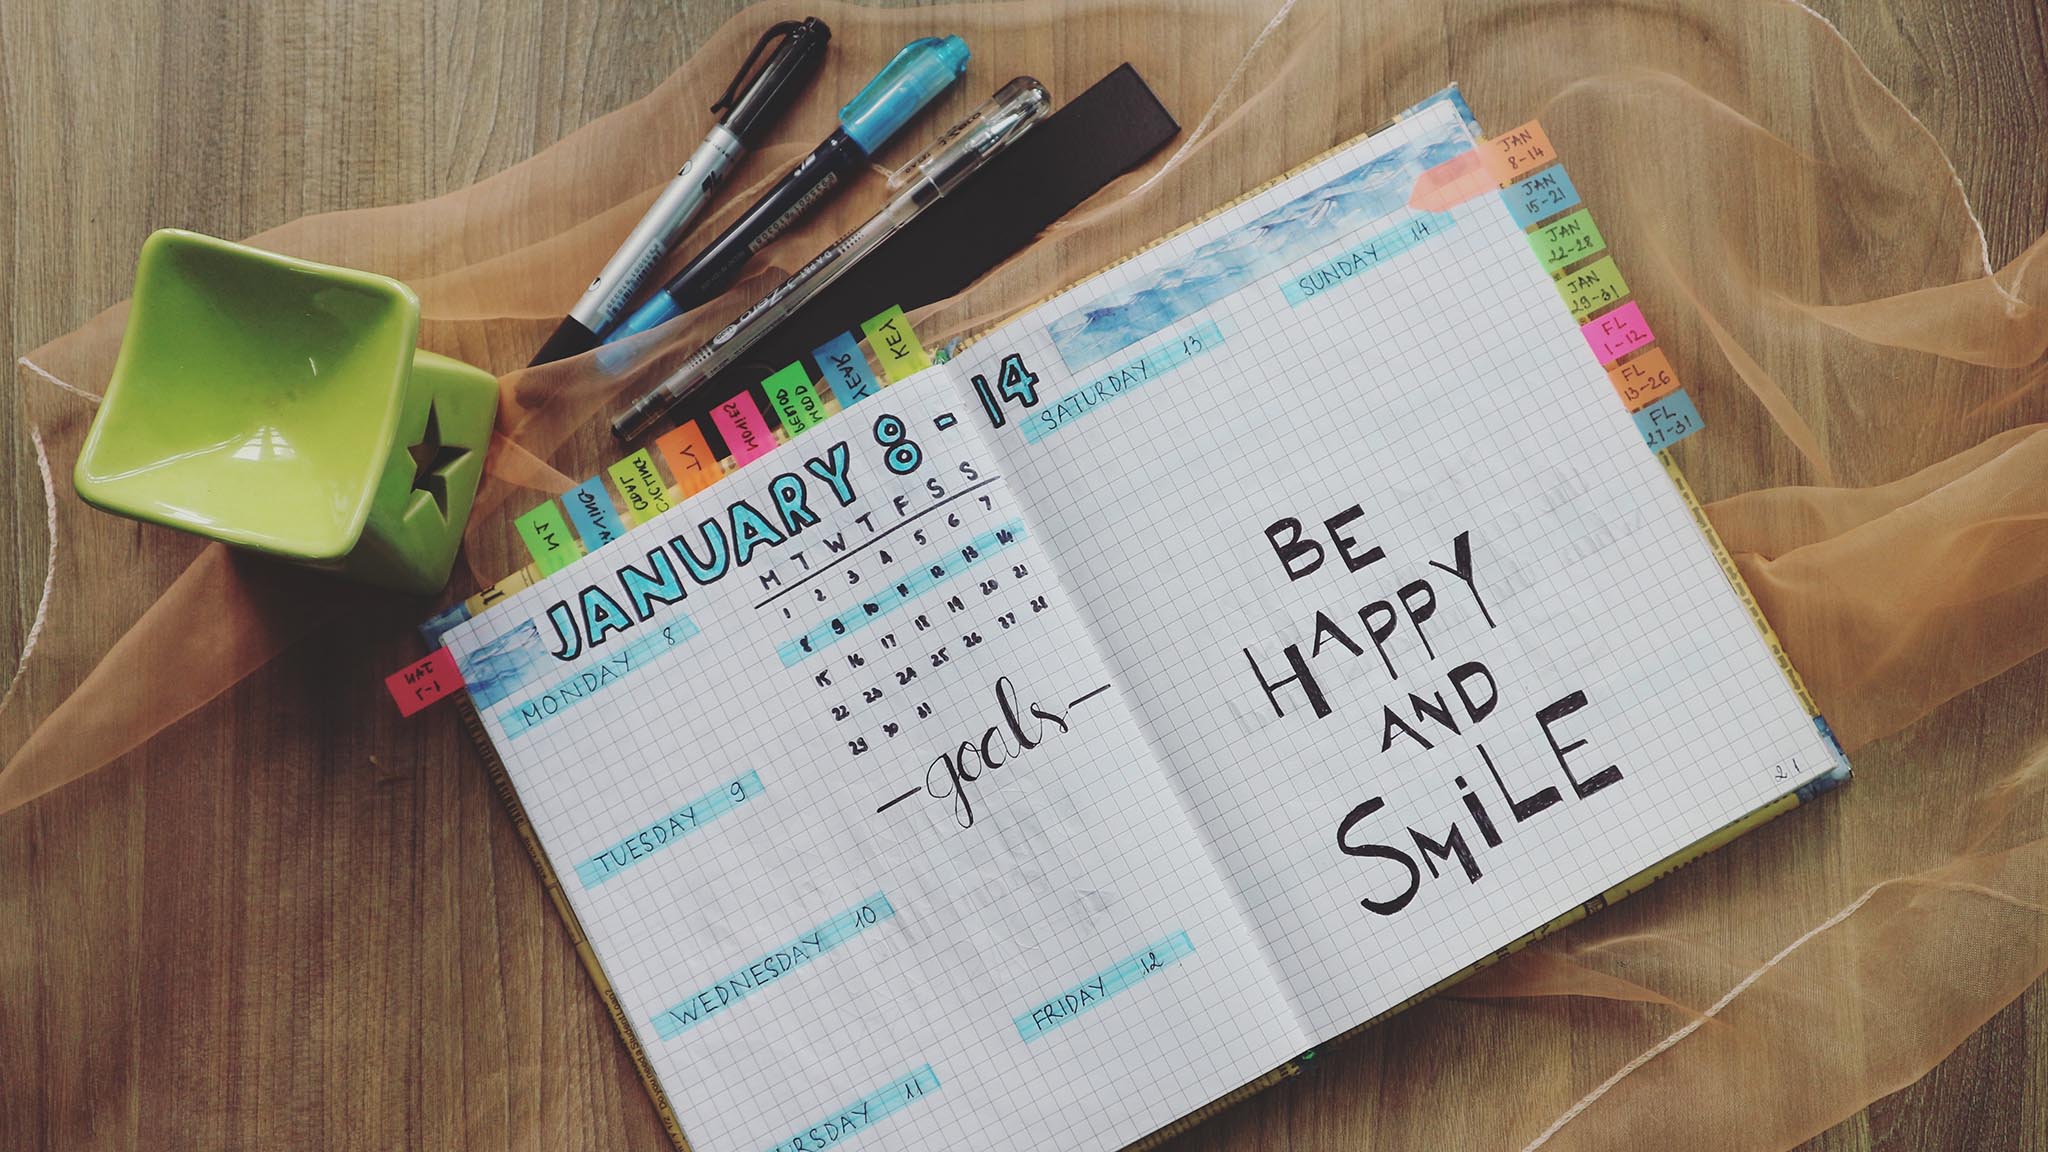 JANUARY 8 - 14
M T W T F S S
1 2 3 4 5 6 7
8 9 10 11 12 13 14
15 16 17 18 19 20 21
22 23 24 25 26 27 28
29 30 31
MONDAY 8
TUESDAY 9
WEDNESDAY 10
11
goals
FRIDAY 12
SATURDAY 13
SUNDAY 14
BE
HAPPY
AND
SMiLE
21
JAN
8-14
JAN
15-21
JAN
22-28
JAN
29-31
FL
1-12
FL
13-26
FL
27-31
KEY
YEAR
MOOD
MOVIES
TV
CYCLING
GOAL
JAN
1-7